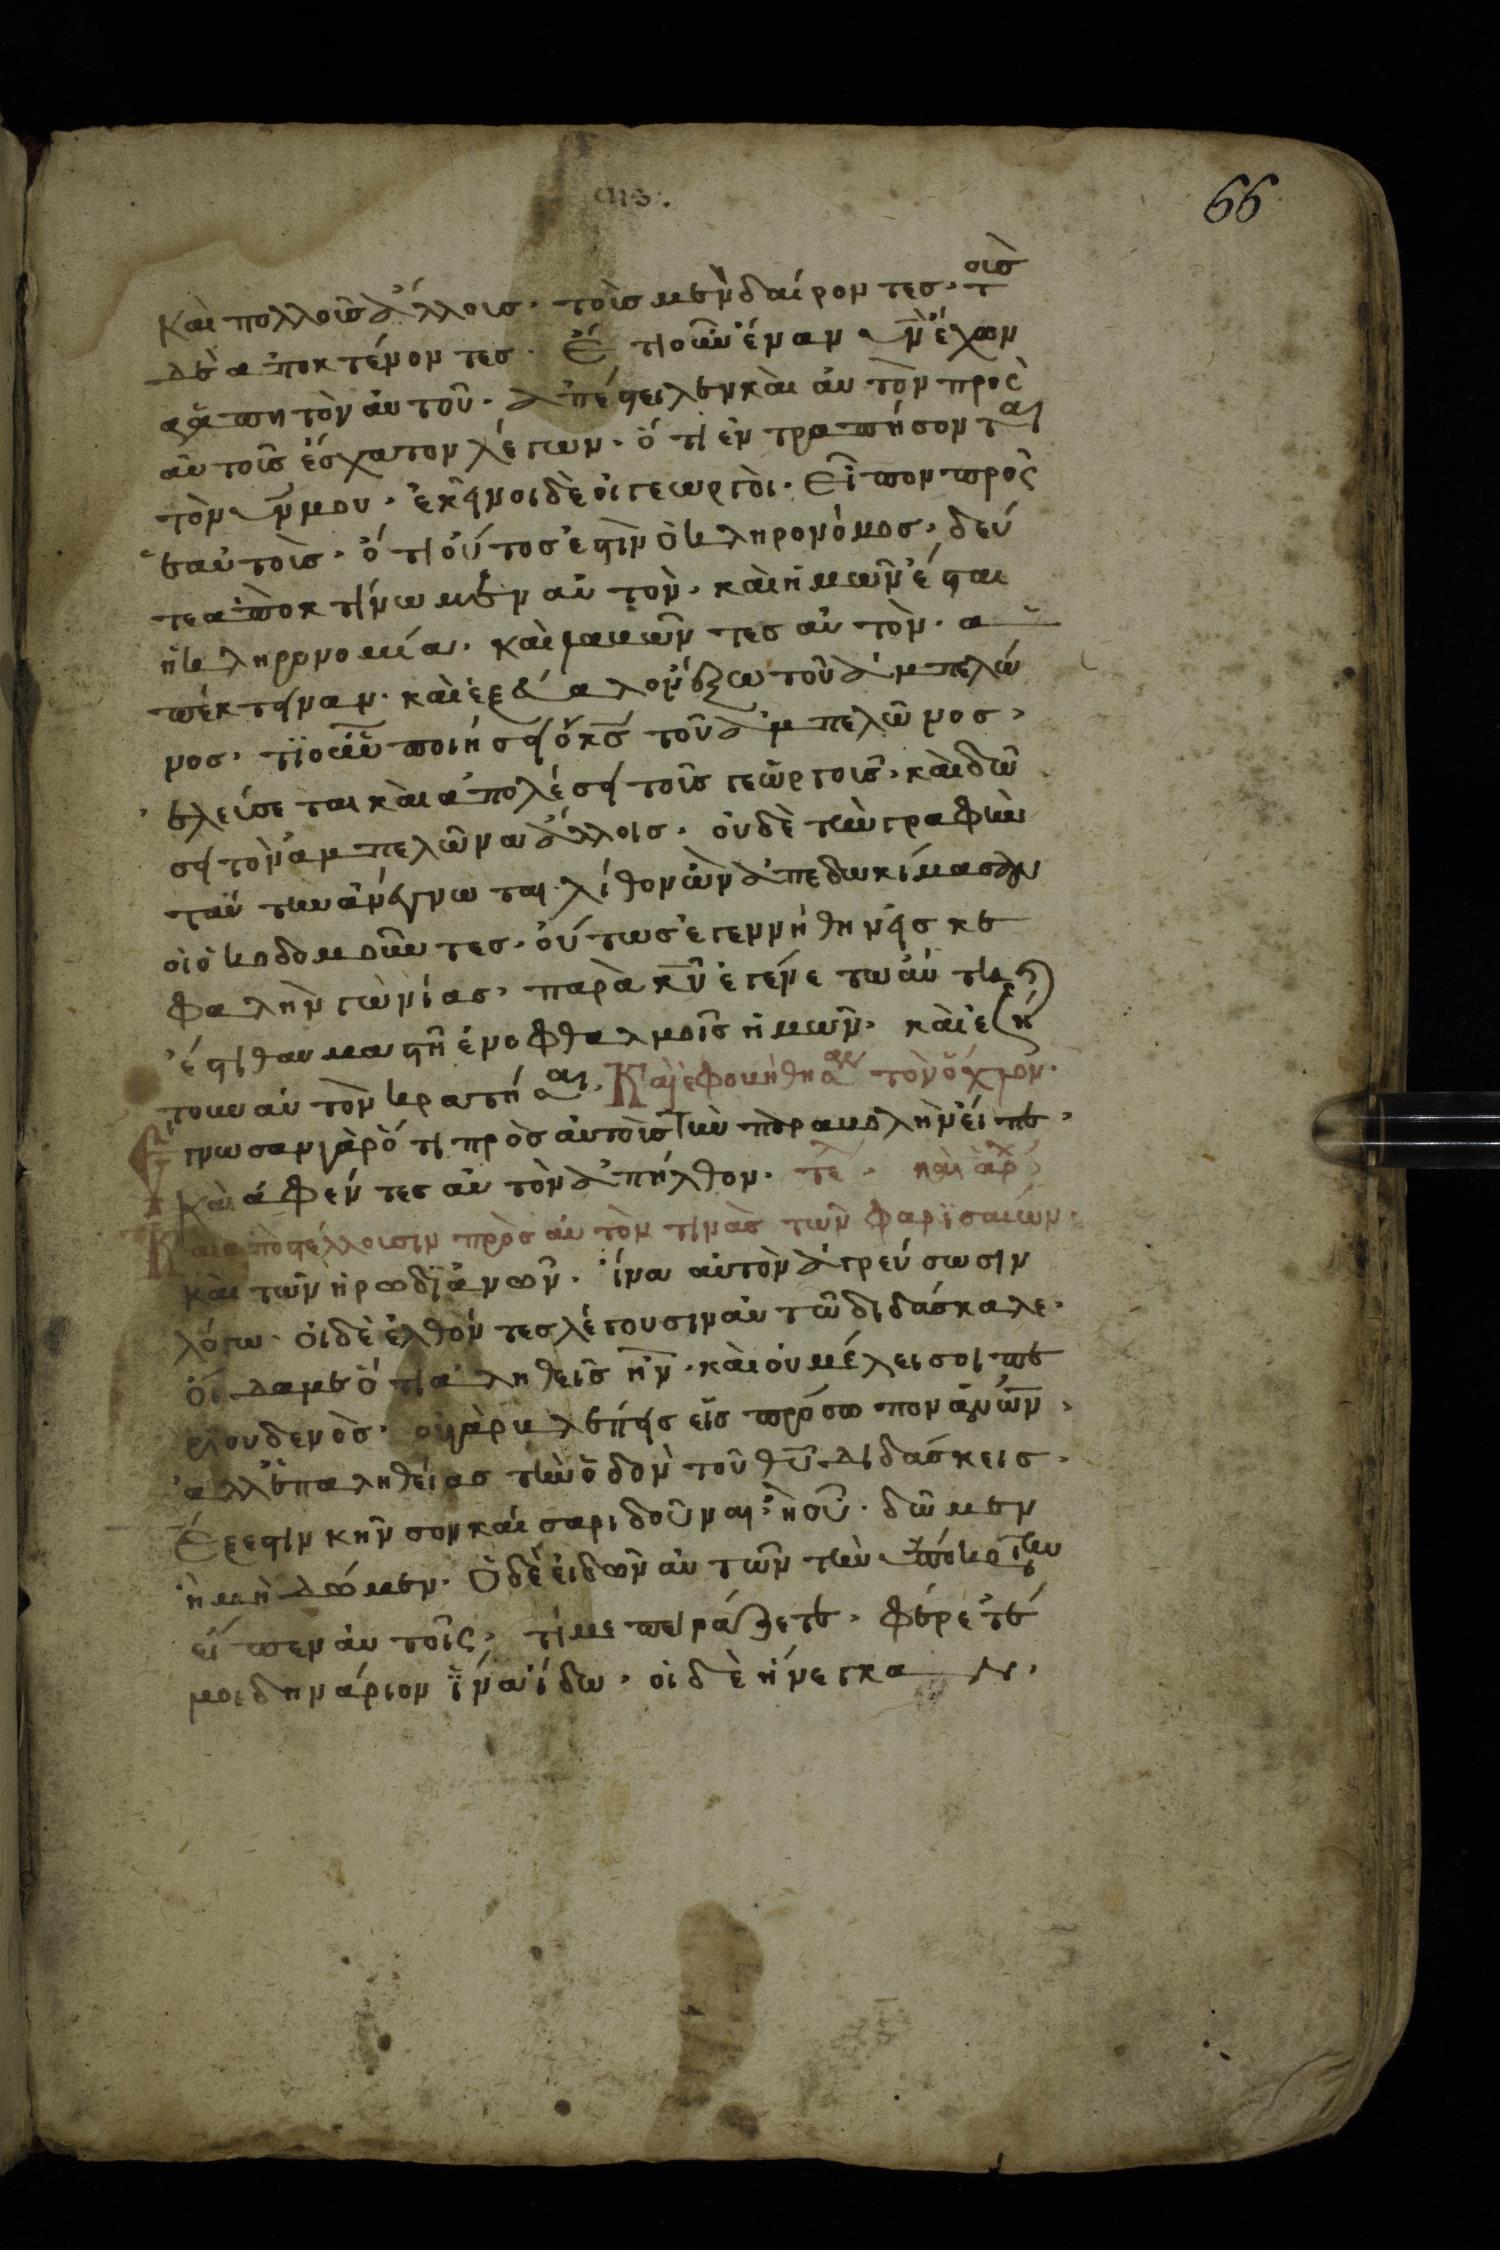 66
καὶ πολλοῖς ἄλλοις· τοῖς μὲν δαίροντες· τοῖς
δὲ ἀποκτένοντες· Ἔτι οὖν ἕναν υν ἔχων
ἀγαπητὸν αὐτοῦ· ἀπέστειλεν καὶ αὐτὸν πρὸς
αὐτοῖς ἔσχατον λέγων· ὅτι ἐντραπήσονται
τὸν υν μου· ἐκεῖνοι δὲ οἱ γεωργοὶ· Εἶπον πρὸς
ἑαὐτοις· ὅτι οὗτος ἐστὶν ὁ κληρονόμος· δεύ
τε ἀποκτίνωμεν αὐτὸν· καὶ ἡμῶν ἔσται
ἡ κληρονομία· καὶ λαβῶντες αὐτὸν· ἀ
πέκτειναν· καὶ ἐξέβαλον ἔξω τοῦ ἀμπελῶ
νος· τί οὖν ποιήσει ὁ κς τοῦ ἀμπελῶνος·
ἐλεύσεται καὶ ἀπολέσει τοῖς γεωργοῖς· καὶ δώ
σει τὸν ἀμπελῶνα ἄλλοις· οὐδὲ τὴν γραφὴν
ταύτην ἀνέγνωται· λίθον ὧν ἀπεδωκίμασαν
οἱ οἰκοδομοῦντες· οὕτως ἐγεννήθην εἰς κε
φαλὴν γωνίας· παρὰ κυ ἐγένετω αὕτη
ἔστι θαυμαστὴ ἐν ὀφθαλμοῖς ἡμῶν· καὶ ἐζή
τουν αὐτὸν κρατῆσαι· Καὶ ἐφοβήθησαν τὸν ὄχλον·
Ἔγνωσαν γὰρ ὅτι πρὸς αὐτοὶς τὴν παραβολὴν εἶπε·
Καὶ ἀφέντες αὐτὸν ἀπήλθον· τέ· καὶ ἀρχ
Καὶ ἀποστέλλουσιν πρὸς αὐτὸν τινὰς τῶν φαρϊσαίων·
καὶ τῶν ἡρωδϊάνων· ἵνα αὐτὸν ἀγρεύσωσιν
λόγω· οἱ δὲ ἐλθόντες λέγουσιν αὐτῶ διδάσκαλε·
οἴδαμεν ὅτι ἀληθεῖς ἦν· καὶ οὐ μέλει σοι πε
ρὶ οὐδενὸς· οὐ γὰρ βλέπεις εἰς πρόσωπον ανων·
ἀλλ' ἐπ' ἀληθείας τὴν ὁδὸν τοῦ θυ διδάσκεις·
Ἔξεστιν κῆνσον καίσαρι δοῦναι· ἢ οὔ· δῶμεν
ἢ μὴ δώμεν· Ὁ δὲ εἰδὼν αὐτῶν τὴν ὑπόκρισιν
εἶπεν αὐτοῖς· τί με πειράζετε· φέρετέ
μοι δηνάριον ἵνα ἴδω· οἱ δὲ ἤνεγκαν·